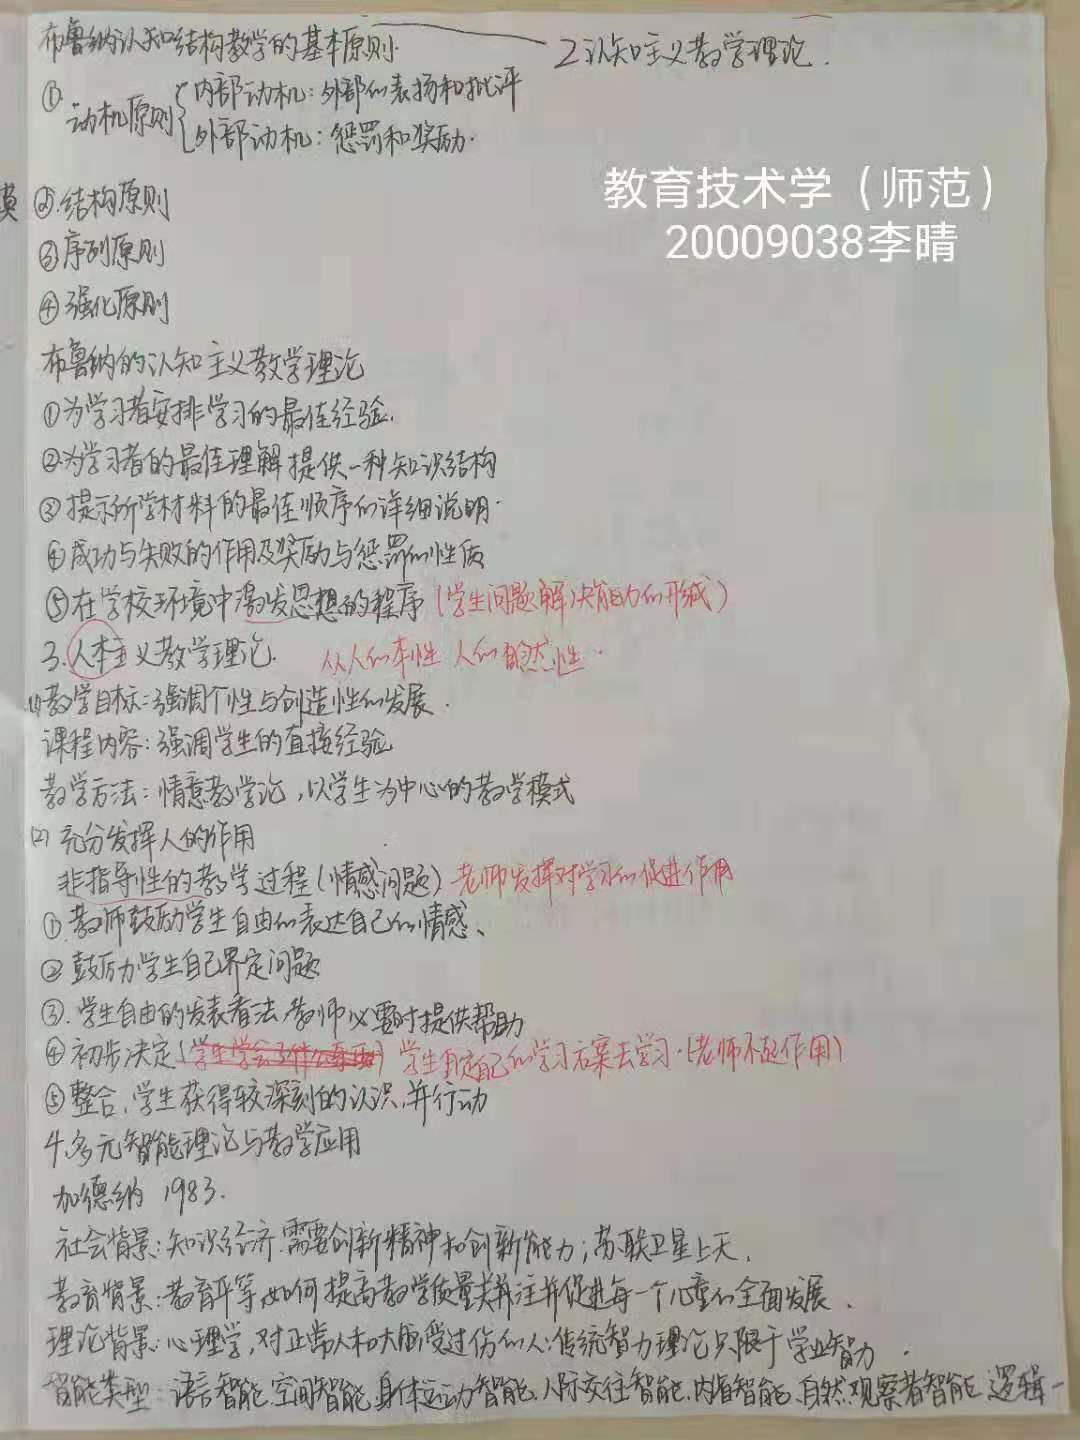 布鲁纳认知结构教学的基本原则.
2.认知主义教学理论.
①.动机原则
内部动机:外部的表扬和批评
外部动机:惩罚和奖励.
教育技术学（师范）
20009038李晴
②.结构原则
③序列原则
④强化原则
布鲁纳的认知主义教学理论
①为学习者安排学习的最佳经验.
②为学习者的最佳理解提供一种知识结构
③提示所学材料的最佳顺序的详细说明.
④成功与失败的作用及奖励与惩罚的性质
⑤在学校环境中激发思想的程序(学生问题解决能力的形成)
3.人本主义教学理论. 从人的本性 人的自然性.
(1)教学目标:强调个性与创造性的发展.
课程内容:强调学生的直接经验
教学方法:情意教学论,以学生为中心的教学模式
(2)充分发挥人的作用
非指导性的教学过程(情感问题)老师发挥对学习的促进作用
①.教师鼓励学生自由的表达自己的情感、
②鼓励学生自己界定问题
③.学生自由的发表看法,教师必要时提供帮助
④初步决定 学生自定自己的学习方案去学习.(老师不起作用)
⑤整合,学生获得较深刻的认识,并行动
4.多元智能理论与教学应用
加德纳 1983.
社会背景:知识经济.需要创新精神和创新能力;苏联卫星上天.
教育背景:教育平等,如何提高教学质量关注并促进每一个儿童的全面发展.
理论背景:心理学,对正常人和大脑受过伤的人;传统智力理论只限于学业智力.
智能类型:语言智能.空间智能.身体运动智能.人际交往智能.内省智能.自然观察者智能 逻辑-